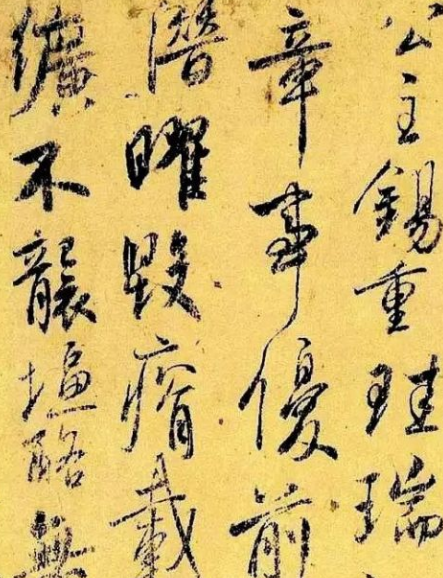 公主錫重珪瑞
章事優前
潛曜毀瘠載
纊不襲塩酪無